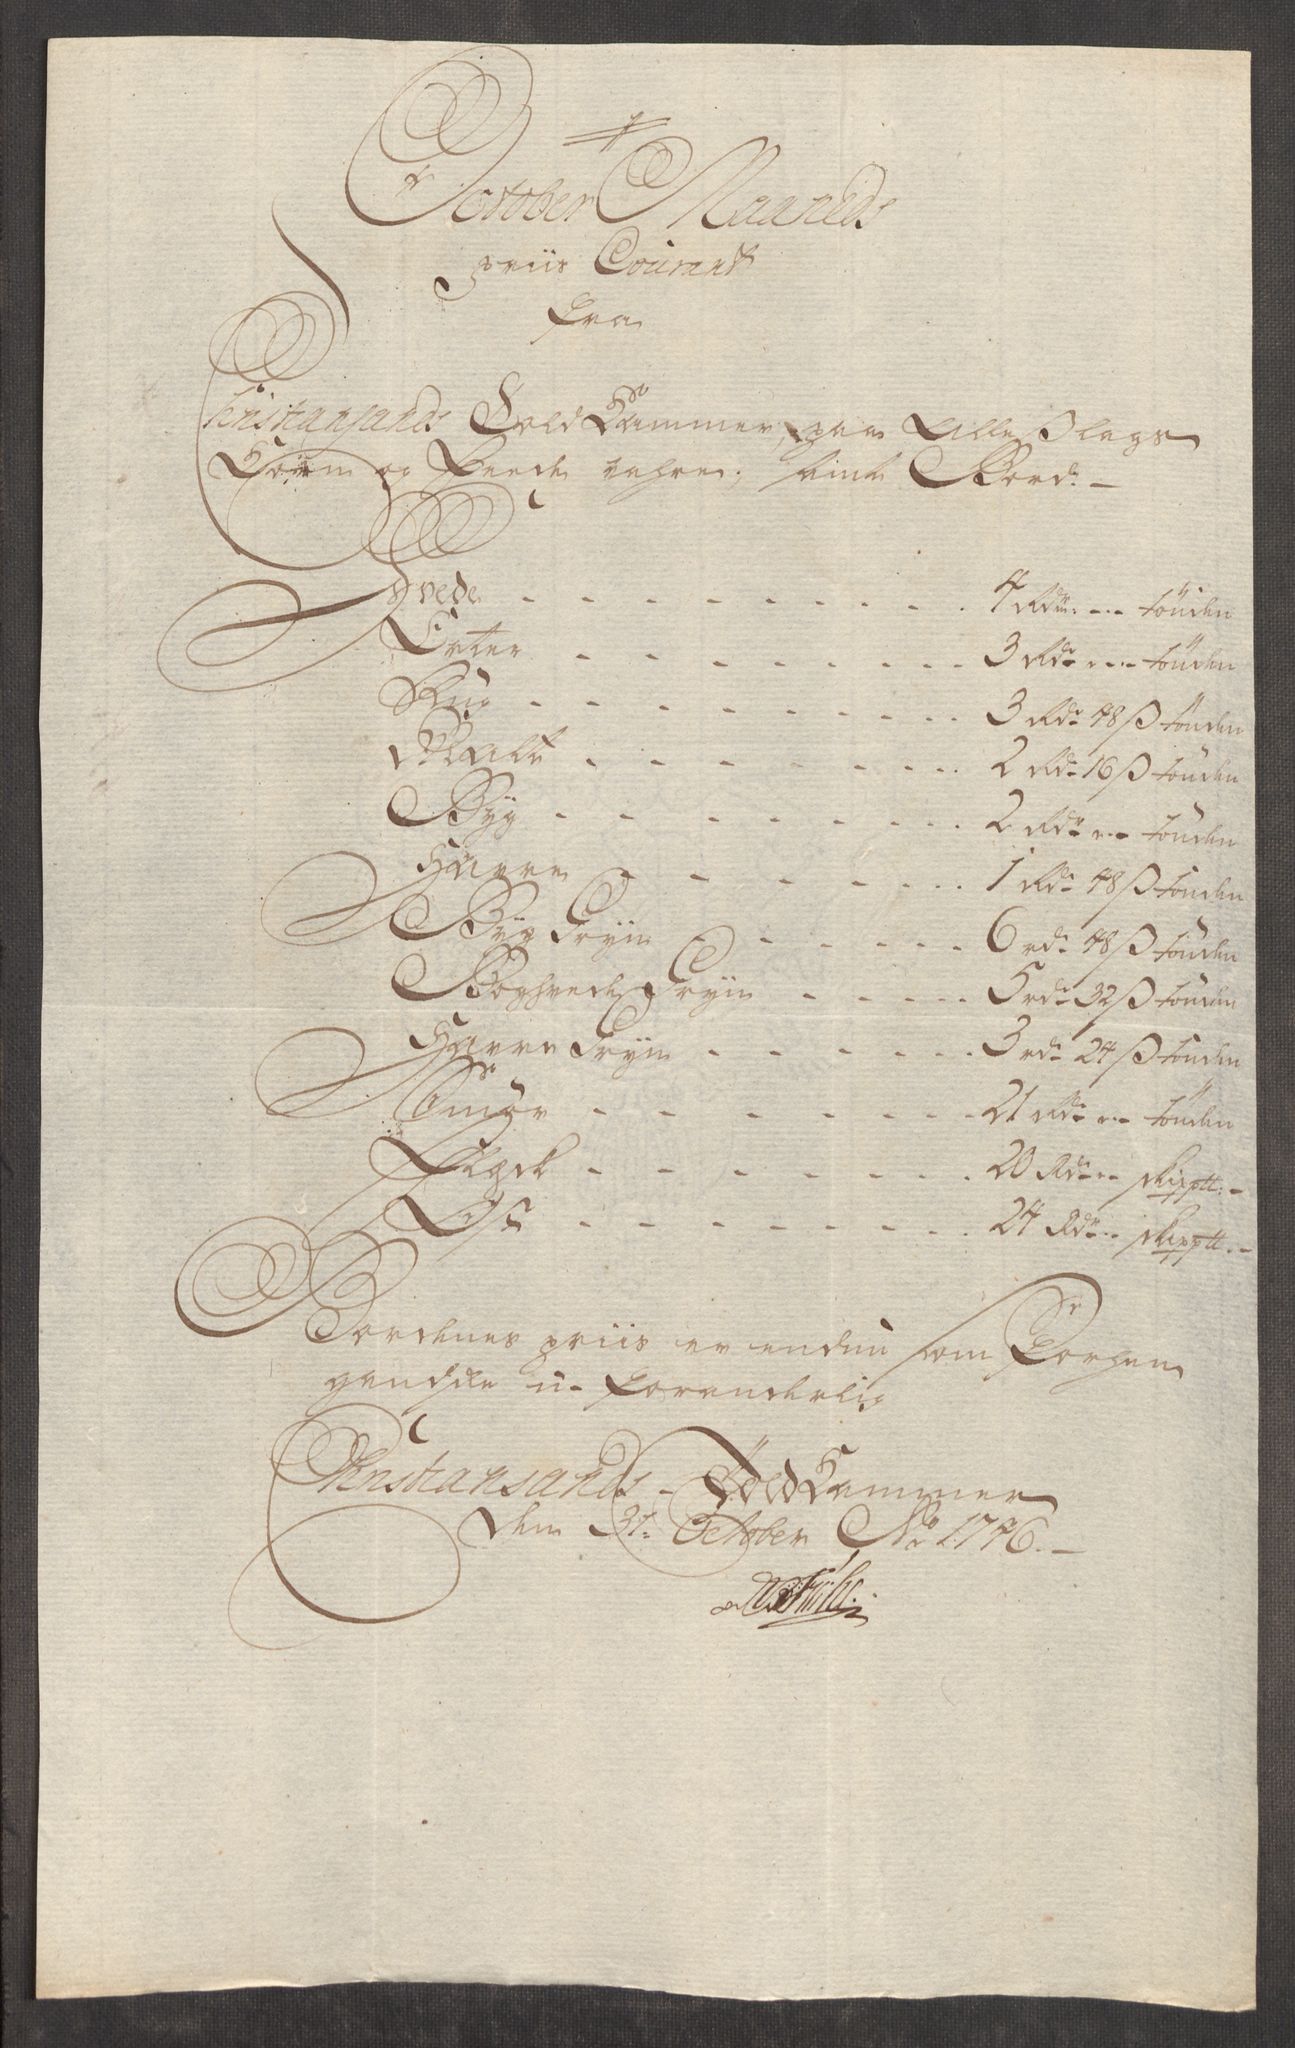 October Maaneds
priis Courant
fra
Christiansands Told Kammer, paa AlleSlags
Korn og Feede vahre, samt Bord. -
Hvede - - - - - - - - - 4 Rdr. --- tönden
Erter - - - - - - - - 3 Rdr --- tönden
Rug - - - - - - - - - 3 Rdr 48 ß tönden
Malt - - - - - - - 2 Rdr 16 ß tönden
Byg - - - - - - - - 2 Rdr --- tönden
Havre - - - - - - - 1 Rdr 48 ß tönden
Byg Gryn - - - - - - 6 rdr 48 ß tönden
Boghvede Gryn - - - - - 5 rdr 32 ß tönden
Havre Gryn - - - - - - 3 rdr 24 ß tönden
Smör - - - - - - - - 21 Rdr --- tönden
Flæsk - - - - - - - 20 Rdr -- skippt. -
Ost - - - - - - - 24 Rdr -- skippt. -
Bordenes priis er endnu som Forhen
u-foranderlig
Christiansands - Told Kammer
den 31. October Ao 1746. -